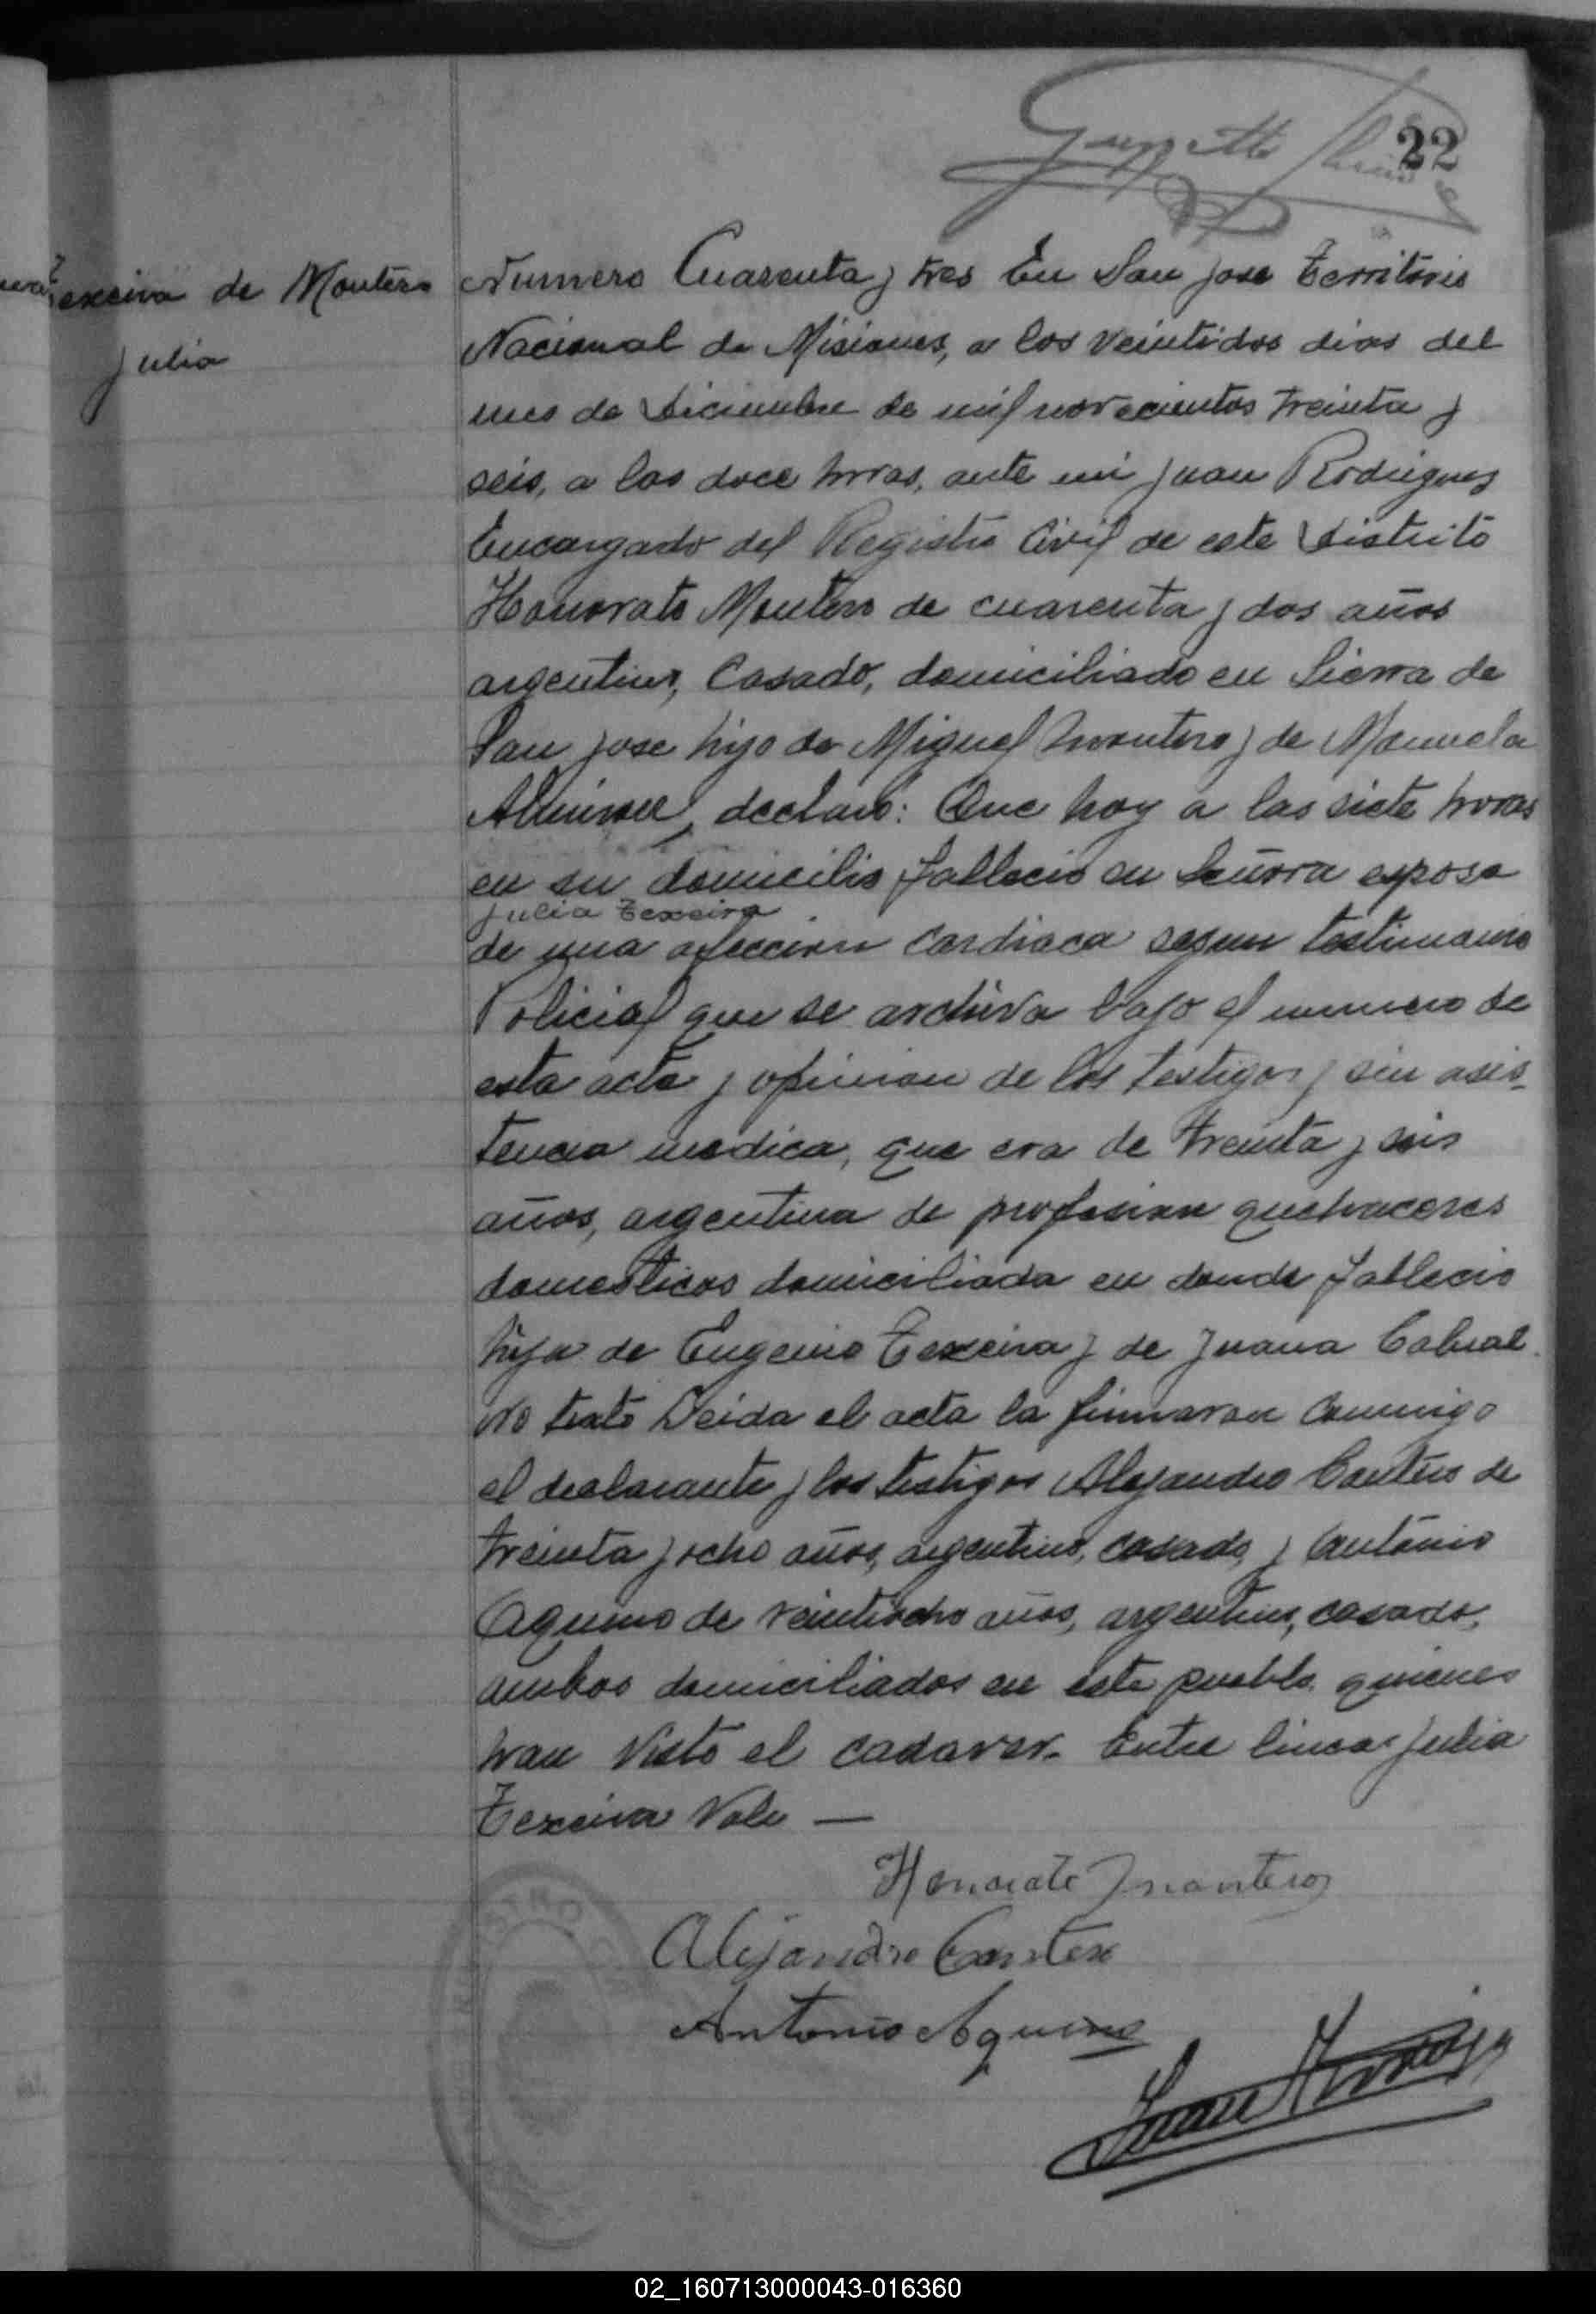 22
Texeira de Montero
Julia
Numero Cuarenta y tres En San Jose Territorio
Nacional de Misiones, a los veintidos dias del
mes de Diciembre de mil novecientos treinta y
seis, a las doce horas, ante mi Juan Rodriguez
Encargado del Registro Civil de este Distrito
Honorato Montero de cuarenta y dos años
argentino, Casado, domiciliado en Sierra de
San Jose hijo de Miguel Montero y de Manuela
declaró: Que hoy a las siete horas
en su domicilio fallecio su Señora esposa
Julia Texeira
de una afeccion cardiaca segun testimonio
Policial que se archiva bajo el numero de
esta acta y opinion de los testigos y sin asis-
tencia medica, que era de treinta y seis
años, argentina de profesion quehaceres
domesticos domiciliada en donde fallecio
hija de Eugenio Texeira y de Juana Cabral.
No testó Leida el acta la firmaron conmigo
el declarante y los testigos Alejandro Cantero de
treinta y ocho años, argentino, casado, y Antonio
Aquino de veintiocho años, argentino, casado,
ambos domiciliados en este pueblo, quienes
han visto el cadaver. Entre lineas Julia
Texeira Vale —
Honorato Montero
Alejandro Cantero
Antonio Aquino
Juan
02_160713000043-016360